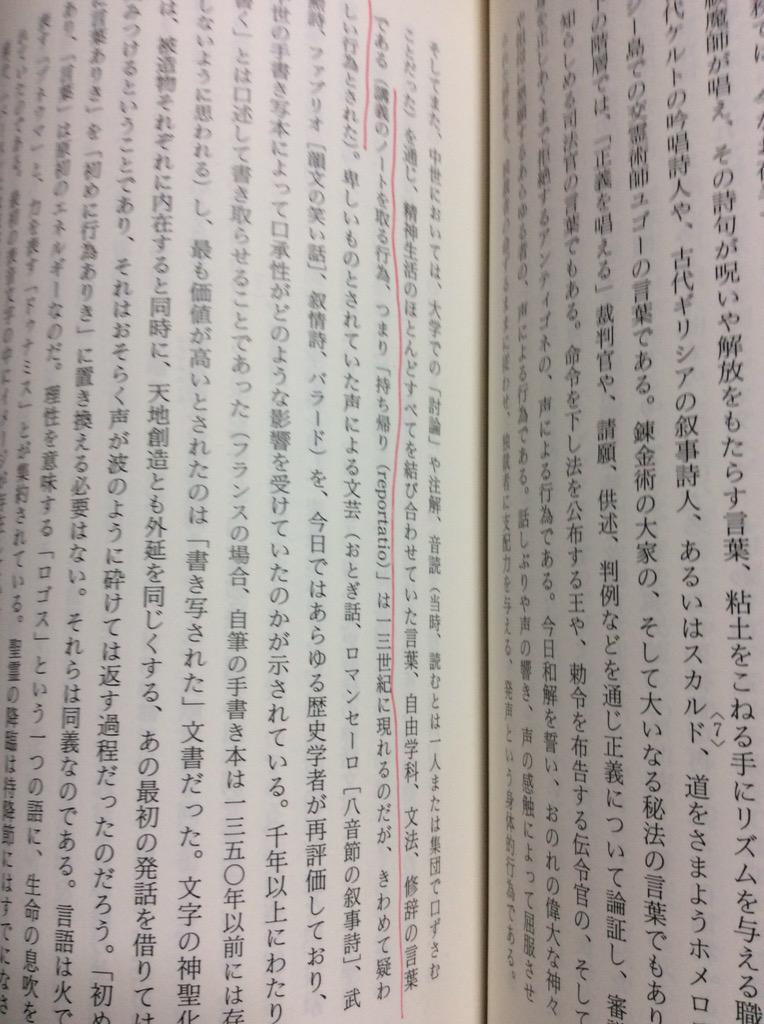 魔師が唱え、その詩句が呪いや解放をもたらす言葉、粘土をこねる手にリズムを与える職
代ケルトの吟唱詩人や、古代ギリシアの叙事詩人、あるいはスカルド、道をさまようホメロ
〈7〉
ジー島での交霊術師ユゴーの言葉である。錬金術の大家の、そして大いなる秘法の言葉でもあり
の階層では、「正義を唱える」裁判官や、請願、供述、判例などを通じ正義について論証し、審
知らしめる司法官の言葉でもある。命令を下し法を公布する王や、勅令を布告する伝令官の、そして
あくまで拒絶するアンティゴネの、声による行為である。今日和解を誓い、おのれの偉大な神々
あらゆる者の、声による行為である。話しぶりや声の響き、声の感触によって屈服させ
独裁者に支配力を与える、発声という身体的行為である。
そしてまた、中世においては、大学での「討論」や注解、音読（当時、読むとは一人または集団で口ずさむ
ことだった）を通じ、精神生活のほとんどすべてを結び合わせていた言葉、自由学科、文法、修辞の言葉
である（講義のノートを取る行為、つまり「持ち帰り（reportatio）」は一三世紀に現れるのだが、きわめて疑わ
しい行為とされた）。卑しいものとされていた声による文芸（おとぎ話、ロマンセーロ［八音節の叙事詩］、武
勲詩、ファブリオ［韻文の笑い話］、叙情詩、バラード）を、今日ではあらゆる歴史学者が再評価しており、
世の手書き写本によって口承性がどのような影響を受けていたのかが示されている。千年以上にわたり
書く」とは口述して書き取らせることであった（フランスの場合、自筆の手書き本は一三五〇年以前には存
しないように思われる）し、最も価値が高いとされたのは「書き写された」文書だった。文字の神聖化
は、被造物それぞれに内在すると同時に、天地創造とも外延を同じくする、あの最初の発話を借りては
みつけるということであり、それはおそらく声が波のように砕けては返す過程だったのだろう。「初め
に言葉ありき」を「初めに行為ありき」に置き換える必要はない。それらは同義なのである。言語は火で
あり、「言葉」は原初のエネルギーなのだ。理性を意味する「ロゴス」という一つの語に、生命の息吹を
表す「プネウマ」と、力を表す「ドゥナミス」とが集約されている。聖霊の降臨は待降節にはすでになさ